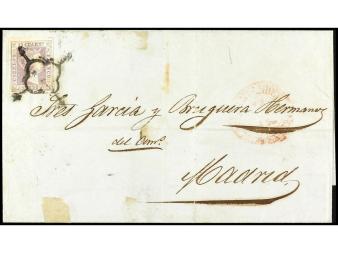 Sres García y Bruguera Hermanos
del Comº.
Madrid